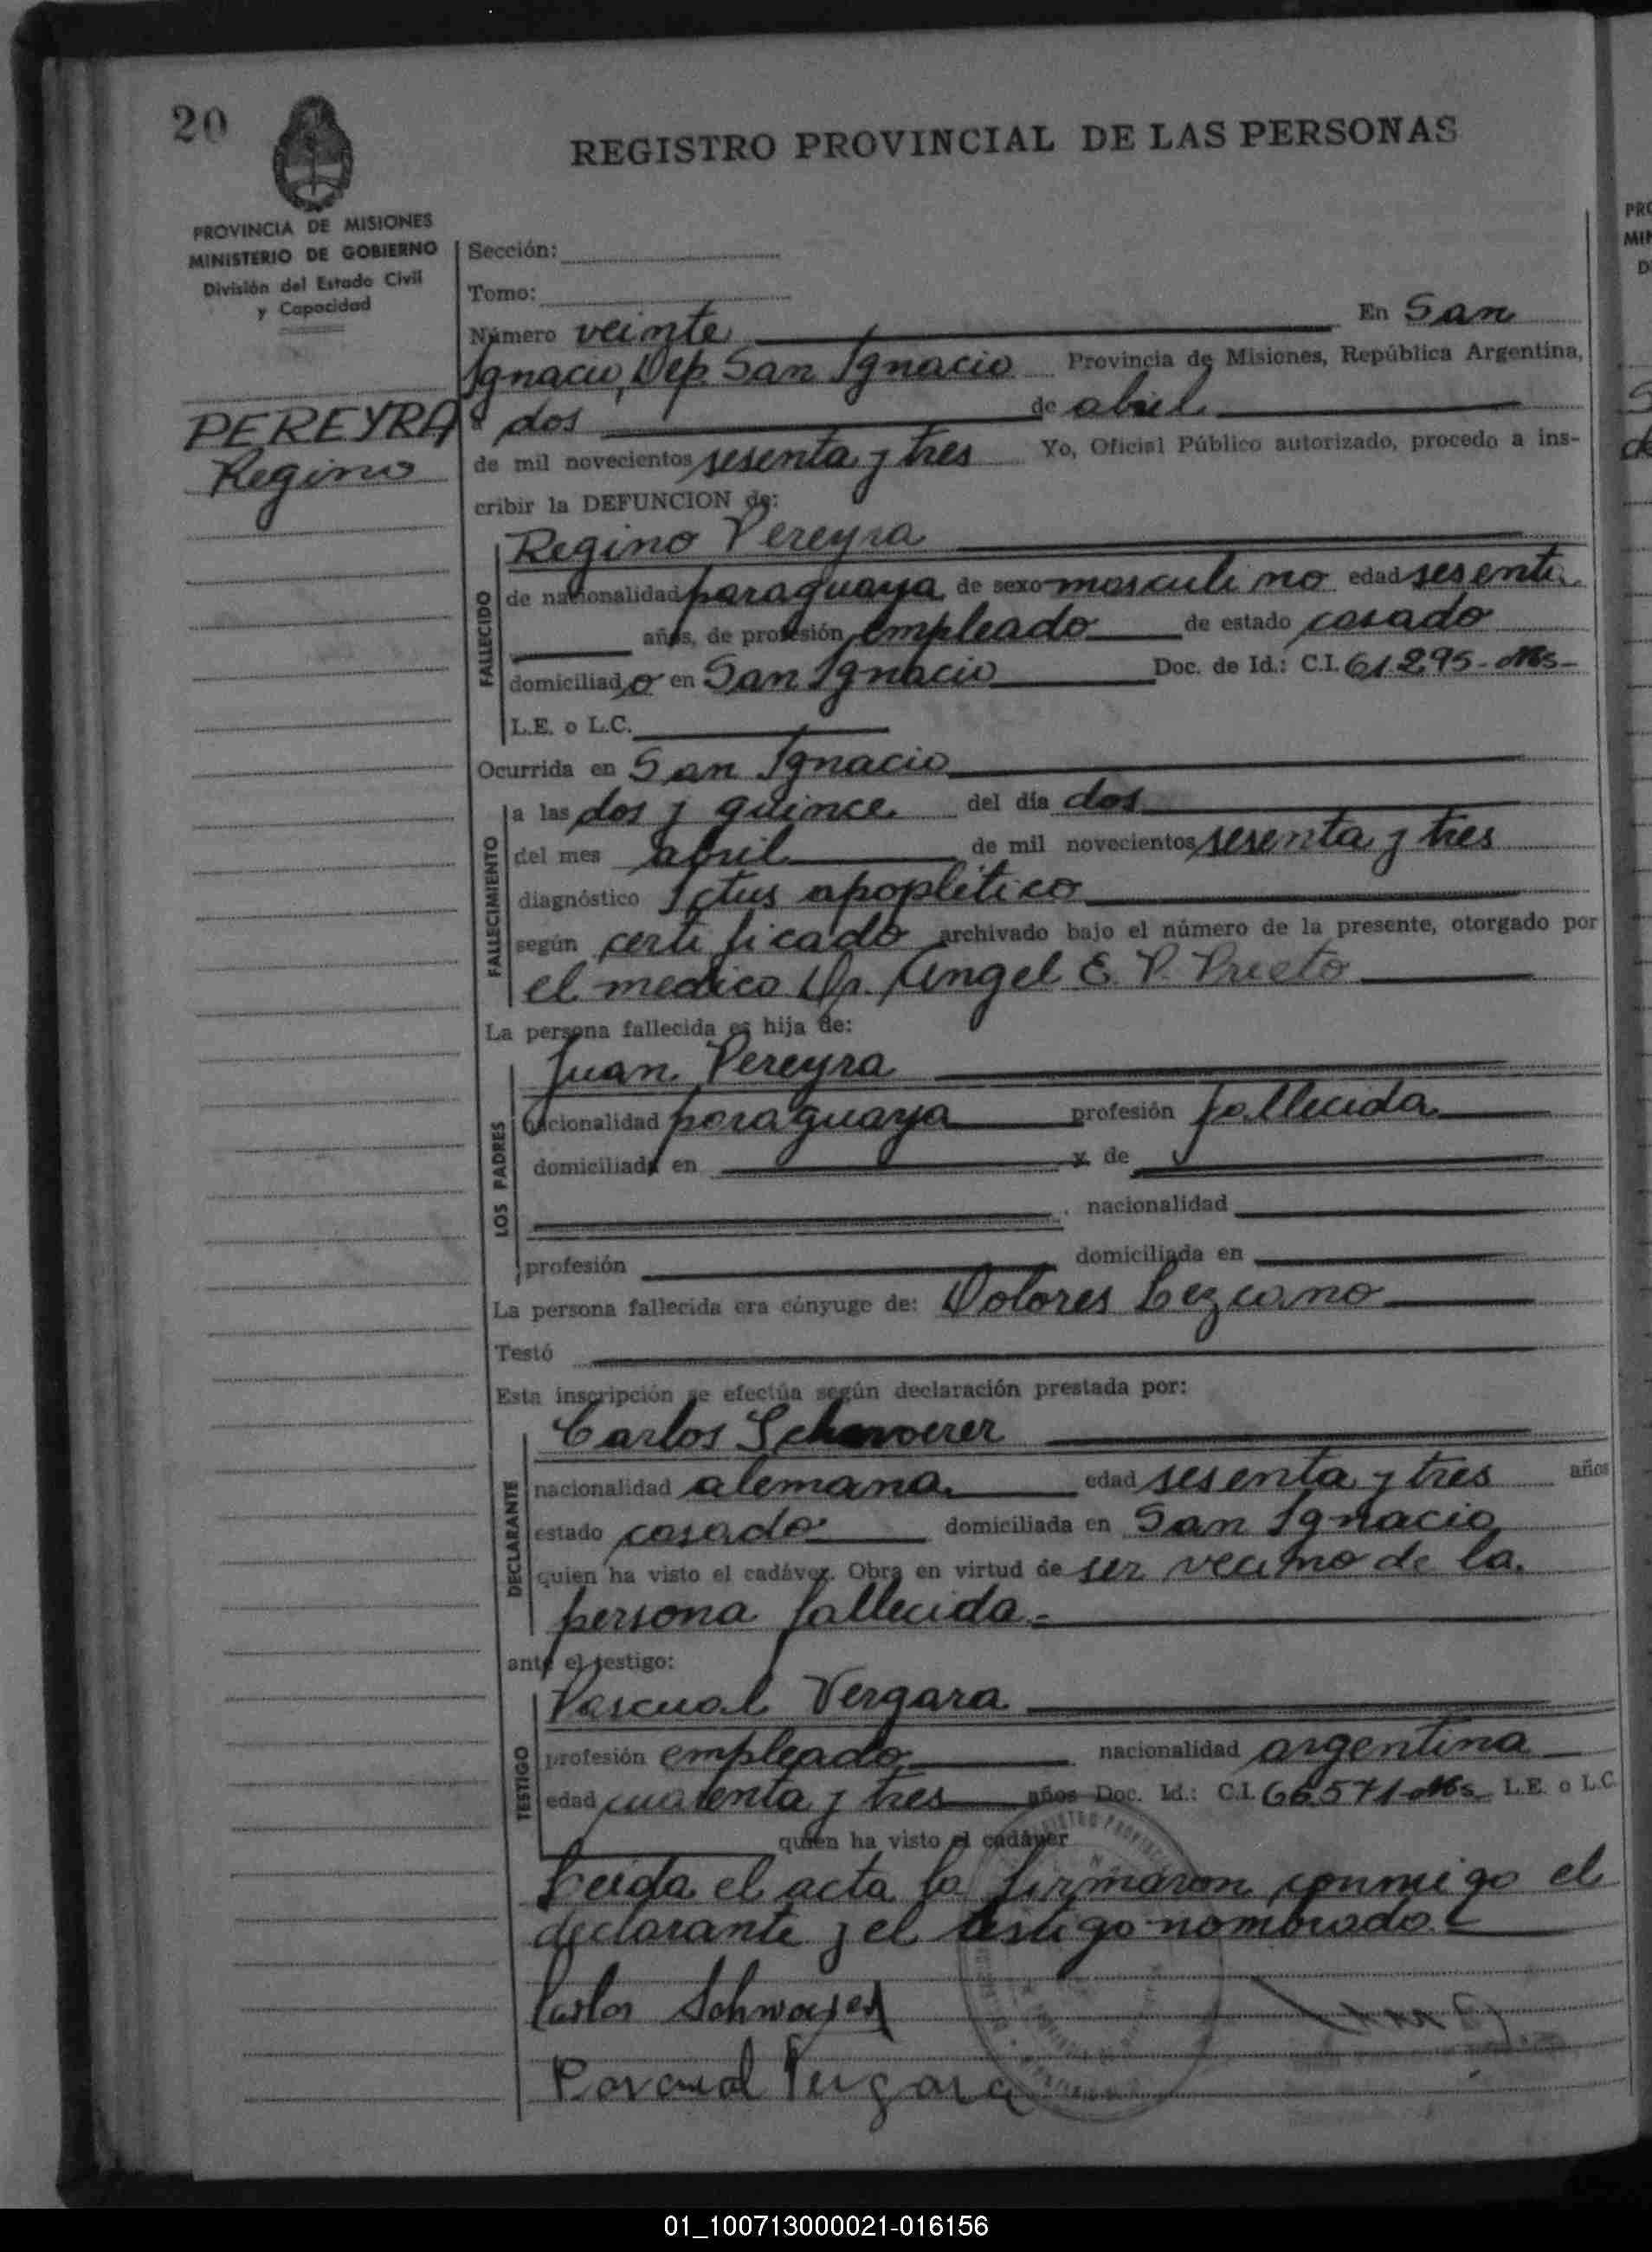 20
REGISTRO PROVINCIAL DE LAS PERSONAS
PROVINCIA DE MISIONES
MINISTERIO DE GOBIERNO
División del Estado Civil
y Capacidad
PEREYRA
Regino
Sección:
Tomo:
Número veinte En San
Ignacio, Dep. San Ignacio Provincia de Misiones, República Argentina,
a dos de abril
de mil novecientos sesenta y tres Yo, Oficial Público autorizado, procedo a ins-
cribir la DEFUNCION de:
FALLECIDO
Regino Pereyra
de nacionalidad paraguaya de sexo masculino edad sesenta
años, de profesión empleado de estado casado
domiciliado en San Ignacio Doc. de Id.: C.I. 61.295-Ms-
L.E. o L.C.
Ocurrida en San Ignacio
FALLECIMIENTO
a las dos y quince del día dos
del mes abril de mil novecientos sesenta y tres
diagnóstico Ictus apoplético
según certificado archivado bajo el número de la presente, otorgado por
el medico Dr. Angel E. P. Prieto
La persona fallecida es hija de:
LOS PADRES
Juan Pereyra
nacionalidad paraguaya profesión fallecida
domiciliada en y de
nacionalidad
profesión domiciliada en
La persona fallecida era cónyuge de: Dolores Lezcano
Testó
Esta inscripción se efectúa según declaración prestada por:
DECLARANTE
Carlos Schwoerer
nacionalidad alemana edad sesenta y tres años
estado casado domiciliada en San Ignacio
quien ha visto el cadáver. Obra en virtud de ser vecino de la
persona fallecida.-
ante el testigo:
TESTIGO
Pascual Vergara
profesión empleado nacionalidad argentina
edad cuarenta y tres años Doc. Id.: C.I. 66.571-Ms L.E. o L.C
quien ha visto el cadáver
Leída el acta la firmaron conmigo el
declarante y el testigo nombrado.-
Carlos Schwoerer
Pascual Vergara
01_100713000021-016156